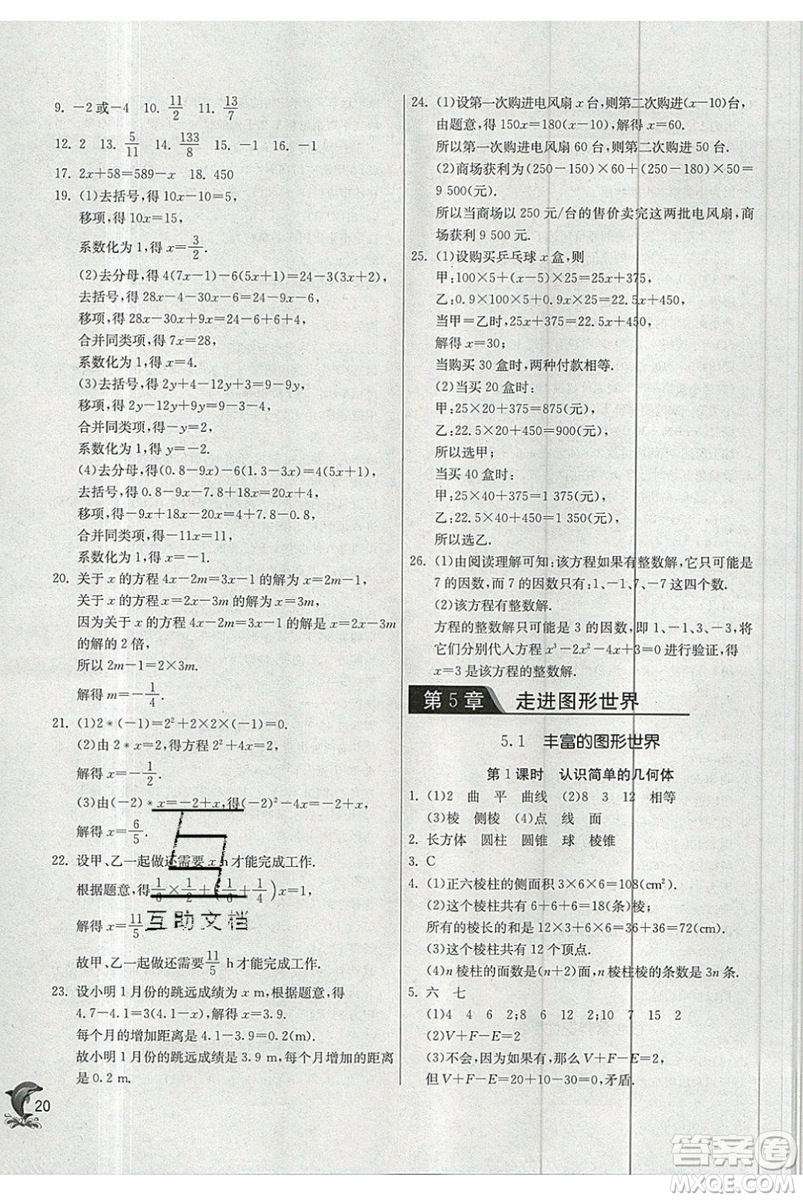 9. －2或－4　10. 11/2　11. 13/7
12. 2　13. 5/11　14. 133/8　15. －1　16. －1
17. 2x＋58＝589－x　18. 450
19. (1)去括号，得 10x－10＝5，
移项，得 10x＝15，
系数化为 1，得 x＝3/2.
(2)去分母，得 4(7x－1)－6(5x＋1)＝24－3(3x＋2)，
去括号，得 28x－4－30x－6＝24－9x－6，
移项，得 28x－30x＋9x＝24－6＋6＋4，
合并同类项，得 7x＝28，
系数化为 1，得 x＝4.
(3)去括号，得 2y＋4－12y＋3＝9－9y，
移项，得 2y－12y＋9y＝9－4－3，
合并同类项，得－y＝2，
系数化为 1，得 y＝－2.
(4)去分母，得 0.8－9x＝1.3－3x－0.02＝4x＋
去括号，得 0.8－9x＋7.8－18x＝20x＋4，
移项，得－9x－18x－20x＝4－7.8－0.8，
合并同类项，得
系数化为 1，得 x＝－1.
20. 关于 x 的方程 4x－2m＝3x－1 的解为 x＝2m－1，
关于 x 的方程 x＝2x－3m 的解为 x＝3m.
因为关于 x 的方程 4x－2m＝3x－1 的解是 x＝2x－3m
的解的 2 倍，
所以 2m－1＝2×3m.
解得 m＝－1/4.
21. (1)2＊(－1)＝2²＋2×2×(－1)＝0.
(2)由 2＊x＝2，得 2²＋2×2x＝2，
解得 x＝－1/2.
(3)由(－2)＊x＝－2＋x，得(－2)²－2×2x＝－2＋x，
解得 x＝6/5.
22. 设甲、乙一起做还需要 x h 才能完成工作.
根据题意，得 1/6×1/2＋(1/6＋1/4)x＝1，
解得 x＝11/5.
故甲、乙一起做还需要 11/5 h 才能完成工作.
23. 设小明 1 月份的跳远成绩为 x m，根据题意，得
4.7－4.1＝3(4.1－x)，解得 x＝3.9.
每个月的增加距离是 4.1－3.9＝0.2(m).
故小明 1 月份的跳远成绩是 3.9 m，每个月增加的距离
是 0.2 m.
20
24. (1)设第一次购进电风扇 x 台，则第二次购进(x－10)台，
由题意，得 150x＝180(x－10)，解得 x＝60.
所以第一次购进电风扇 60 台，第二次购进 50 台.
(2)商场获利为(250－150)×60＋(250－180)×50＝
9 500(元).
所以当商场以 250 元/台的售价卖完这两批电风扇，商
场获利 9 500 元.
25. (1)设购买乒乓球 x 盒，则
甲：100×5＋(x－5)×25＝25x＋375，
乙：0.9×100×5＋0.9x×25＝22.5x＋450，
当甲＝乙时，25x＋375＝22.5x＋450，
解得 x＝30；
当购买 30 盒时，两种付款相等.
(2)当买 20 盒时：
甲：25×20＋375＝875(元)，
乙：22.5×20＋450＝900(元)，
所以选甲；
当买 40 盒时：
甲：25×40＋375＝1 375(元)，
乙：22.5×40＋450＝1 350(元)，
所以选乙.
26. (1)由阅读理解可知：该方程如果有整数解，它只可能是
7 的因数，而 7 的因数只有：1、－1、7、－7 这四个数.
(2)该方程有整数解.
方程的整数解只可能是 3 的因数，即 1、－1、3、－3，将
它们分别代入方程 x³－2x²－4x＋3＝0 进行验证，得
x＝3 是该方程的整数解.
第 5 章　走进图形世界
5.1　丰富的图形世界
第 1 课时　认识简单的几何体
1. (1)2　曲　平　曲线　(2)8　3　12　相等
(3)棱　侧棱　(4)点　线　面
2. 长方体　圆柱　圆锥　球　棱锥
3. C
4. (1)正六棱柱的侧面积 3×6×6＝108(cm²).
(2)这个棱柱共有 6＋6＋6＝18(条)棱，
所有的棱长的和是 12×3＋6×6＝72(cm).
(3)这个棱柱共有 12 个顶点.
(4)n 棱柱的面数是(n＋2)面，n 棱柱棱的条数是 3n 条.
5. 六　七
(1)4　4　6　2；8　6　12　2；10　7　15　2
(2)V＋F－E＝2；
(3)不会，因为如果有，那么 V＋F－E＝2，
但 V＋F－E＝20＋10－30＝0，矛盾.
互助文档
答案圈
MXQE.COM